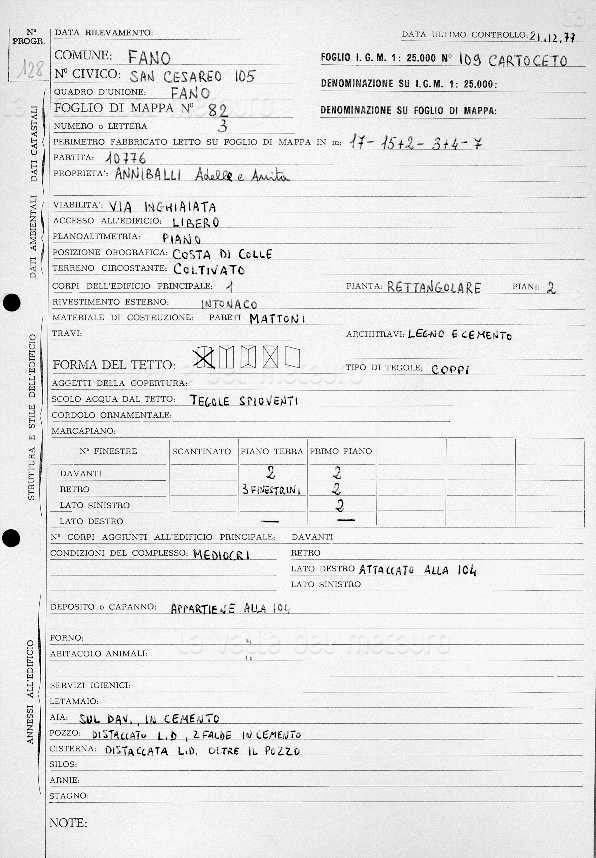 N° PROGR. 128
DATA RILEVAMENTO:
DATA ULTIMO CONTROLLO: 21.12.77
COMUNE: FANO
FOGLIO I. G. M. 1: 25.000 N° 109 CARTOCETO
N° CIVICO: SAN CESAREO 105
DENOMINAZIONE SU I. G. M. 1: 25.000:
QUADRO D'UNIONE: FANO
FOGLIO DI MAPPA N° 82
DENOMINAZIONE SU FOGLIO DI MAPPA:
NUMERO o LETTERA 3
PERIMETRO FABBRICATO LETTO SU FOGLIO DI MAPPA IN m: 17-15+2-3+4-7
PARTITA: 10776
PROPRIETA': ANNIBALLI Adelle e Anita
DATI CATASTALI
VIABILITA': VIA INGHIAIATA
ACCESSO ALL'EDIFICIO: LIBERO
PLANOALTIMETRIA: PIANO
POSIZIONE OROGRAFICA: COSTA DI COLLE
TERRENO CIRCOSTANTE: COLTIVATO
DATI AMBIENTALI
CORPI DELL'EDIFICIO PRINCIPALE: 1 PIANTA: RETTANGOLARE PIANI: 2
RIVESTIMENTO ESTERNO: INTONACO
MATERIALE DI COSTRUZIONE: PARETI MATTONI
TRAVI: ARCHITRAVI: LEGNO E CEMENTO
FORMA DEL TETTO: TIPO DI TEGOLE: COPPI
AGGETTI DELLA COPERTURA:
SCOLO ACQUA DAL TETTO: TEGOLE SPIOVENTI
CORDOLO ORNAMENTALE:
MARCAPIANO:
N° FINESTRE SCANTINATO PIANO TERRA PRIMO PIANO
DAVANTI 2 2
RETRO 3 FINESTRINI 2
LATO SINISTRO 2
LATO DESTRO — —
STRUTTURA E STILE DELL'EDIFICIO
N° CORPI AGGIUNTI ALL'EDIFICIO PRINCIPALE: DAVANTI
CONDIZIONI DEL COMPLESSO: MEDIOCRI RETRO
LATO DESTRO ATTACCATO ALLA 104
LATO SINISTRO
DEPOSITO o CAPANNO: APPARTIENE ALLA 104
FORNO:
le valle del metauro
ABITACOLO ANIMALI:
SERVIZI IGIENICI:
LETAMAIO:
AIA: SUL DAV., IN CEMENTO
POZZO: DISTACCATO L.D, 2 FALDE IN CEMENTO
CISTERNA: DISTACCATA L.D. OLTRE IL POZZO
SILOS:
ARNIE:
STAGNO:
ANNESSI ALL'EDIFICIO
NOTE: